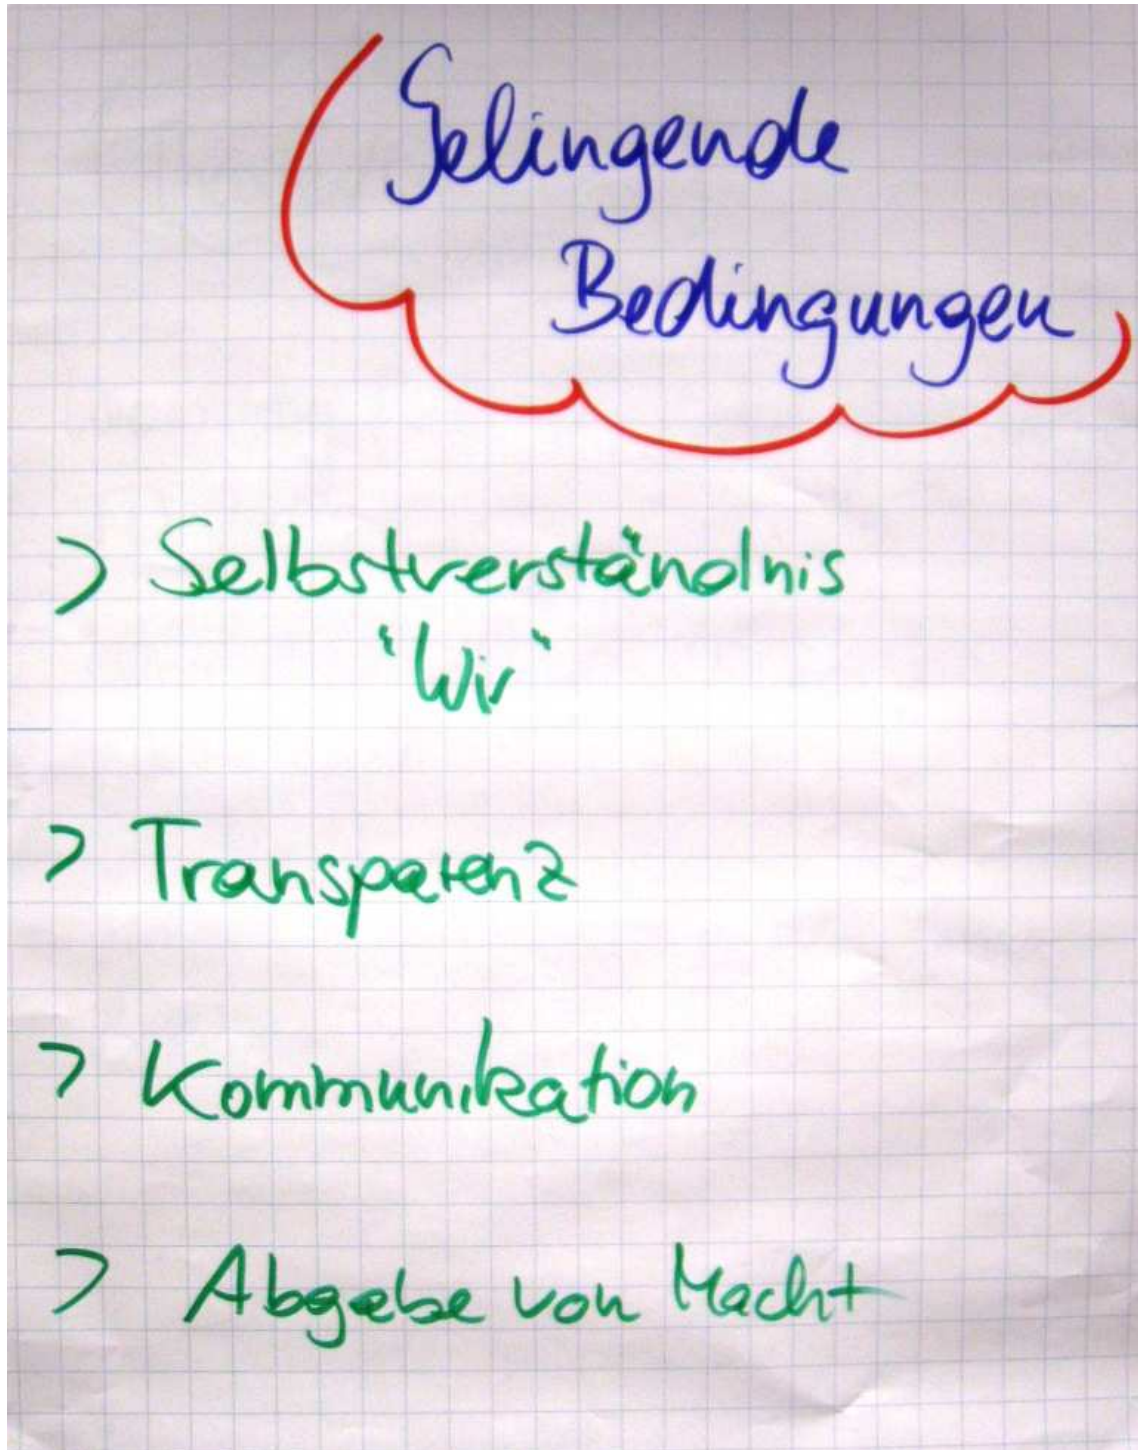 Gelingende
Bedingungen
> Selbstverständnis
"Wir"
> Transparenz
> Kommunikation
> Abgabe von Macht